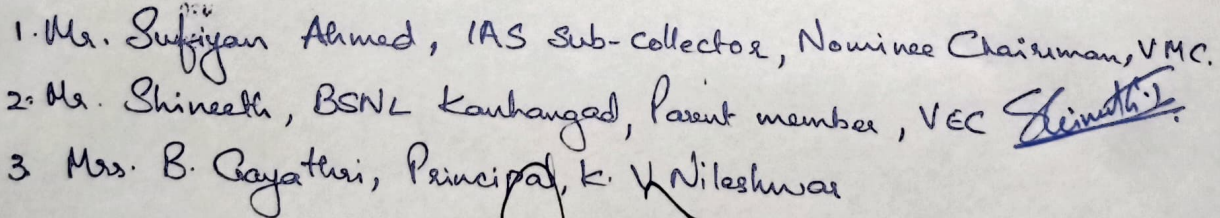 1. Mr. Sufiyan Ahmed, IAS Sub-Collector, Nominee Chairman, VMC.
2. Mr. Shineeth, BSNL Kanhangad, Parent member, VEC
3 Mrs. B. Gayathri, Principal, K. V Nileshwar